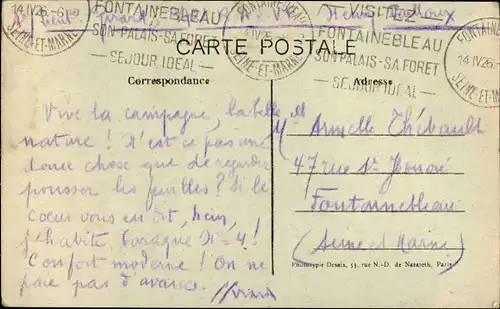 VISITEZ
FONTAINEBLEAU
SON PALAIS - SA FORET
SEJOUR IDEAL
FONTAINEBLEAU
SON PALAIS - SA FORET
SEJOUR IDEAL
14 IV 26
SEINE-ET-MARNE
14 IV 26
SEINE-ET-MARNE
14 IV 26
SEINE-ET-MARNE
CARTE POSTALE
Correspondance
Adresse
Vive la campagne, la belle
nature ! N'est ce pas une
douce chose que de regarder
pousser les feuilles ? Si le
coeur vous en dit, hein,
j'habite, baraque N° 4 !
Confort moderne ! On ne
paie pas d'avance.
Mlle Armelle Thébault
47 rue St Honoré
Fontainebleau
(Seine et Marne)
Phototypie Desaix, 53, rue N.-D. de Nazareth, Paris